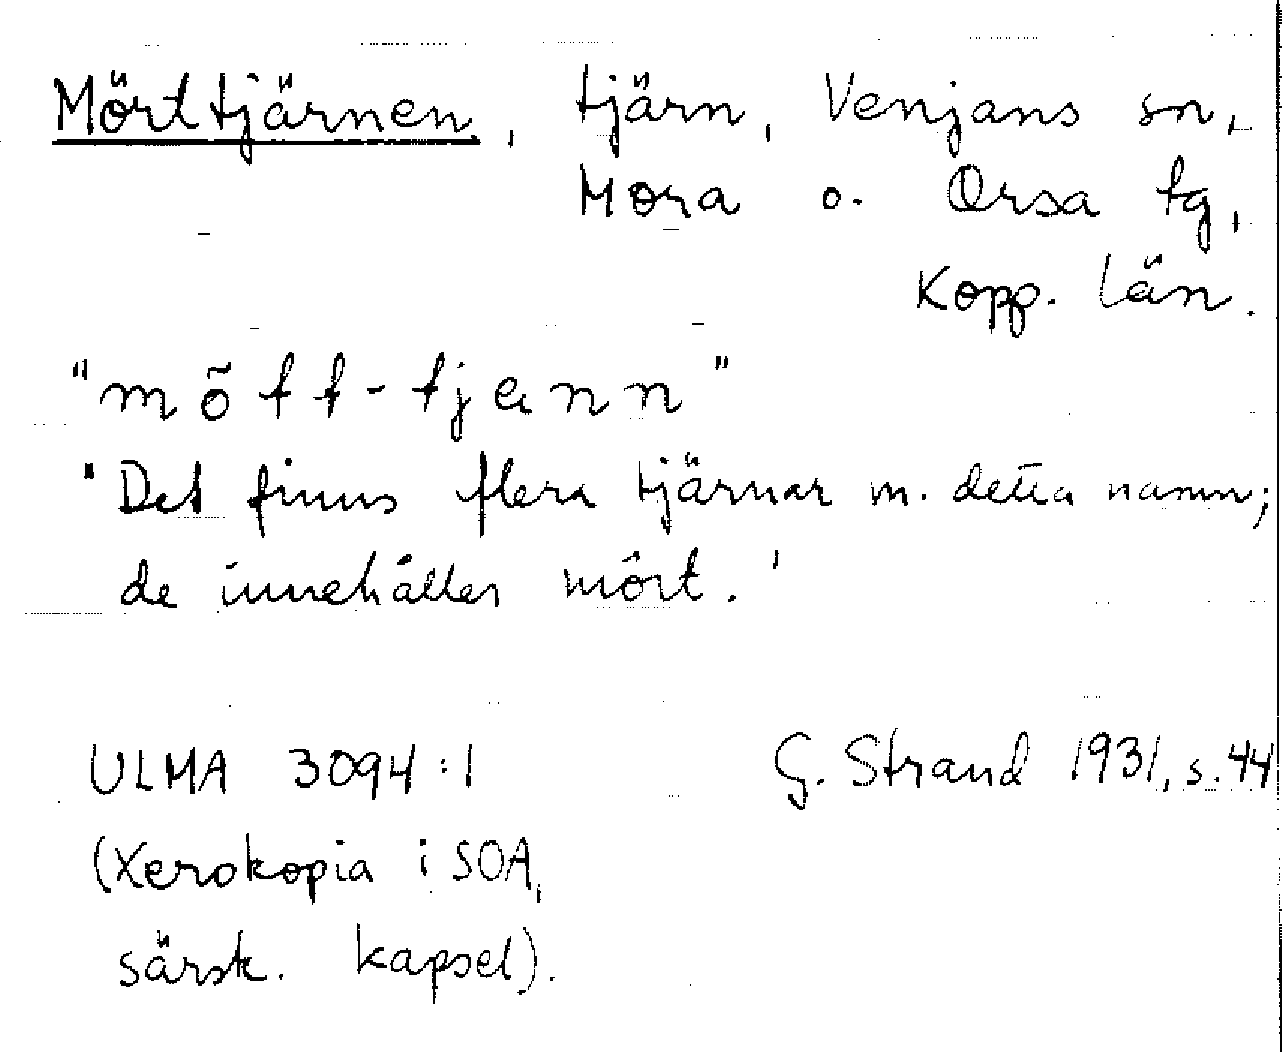 Mörttjärnen, tjärn, Venjans sn,
Mora o. Orsa tg,
Kopp. län.
"mõtt-tjenn"
"Det finns flera tjärnar m. detta namn;
de innehåller mört."
ULMA 3094:1 G. Strand 1931, s. 44
(Xerokopia i SOA,
särsk. kapsel).